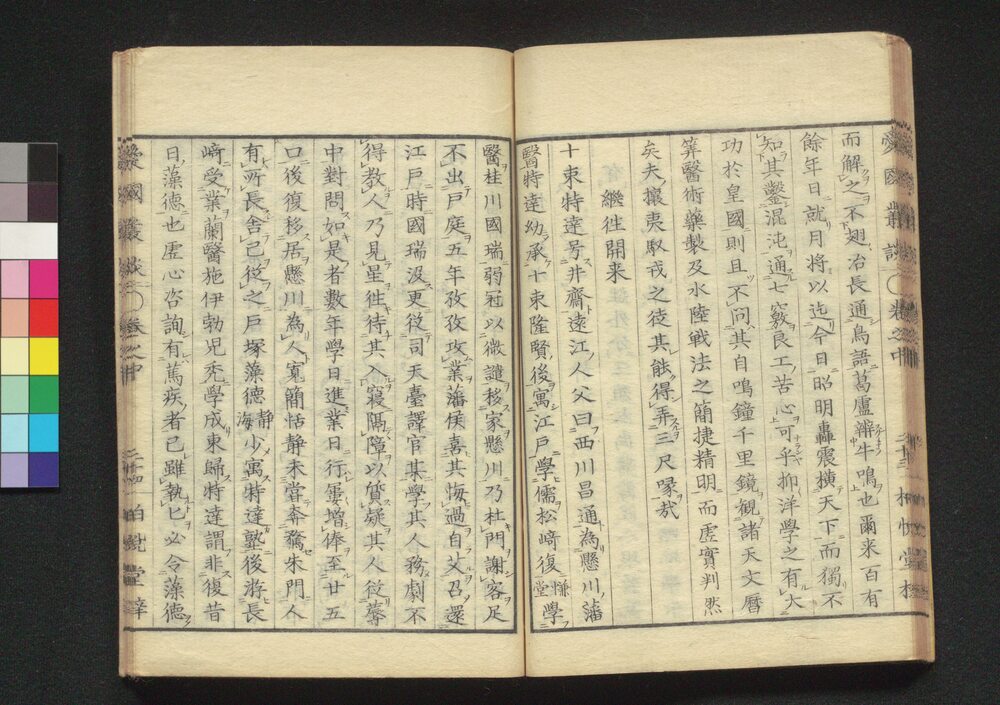 而解之不翅冶長通鳥語葛盧辨牛鳴也爾来百有
餘年日就月將以迄今日昭明轟震橫天下而獨不
知其鑿混沌通七竅良工苦心可乎抑洋學之有大
功於皇國則且不問其自鳴鐘千里鏡観諸天文曆
筭醫術藥製及水陸戦法之簡捷精明而虚實判然
矣夫攘夷馭戎之徒其能得弄三尺喙哉
繼徃開来
十束特達号井齋遠江人父曰西川昌通為懸川藩
醫特達幼承十束隆賢後寓江戸學儒松﨑復慊堂學
醫桂川國瑞弱冠以微譴移家懸川乃杜門謝客足
不出戸庭五年孜孜攻業藩侯喜其悔過自父召還
江戸時國瑞没更從司天臺譯官某學其人務劇不
得教人乃見星徃待其入寢隔障以質疑其人從蓐
中對問如是者數年學日進業日行屢増俸至廿五
口後復移居懸川為人寬簡恬静未嘗奔騖朱門人
有所長舍己從之戸塚藻德静海少寓特達塾後游長
﨑受業蘭醫施伊勃児禿學成東歸特達謂非復昔
日藻德也虚心咨詢有篤疾者已雖執匕必令藻德
愛國叢談 卷之中 二十三 柏悦堂梓
愛國叢談 卷之中 二十四 柏悦堂梓